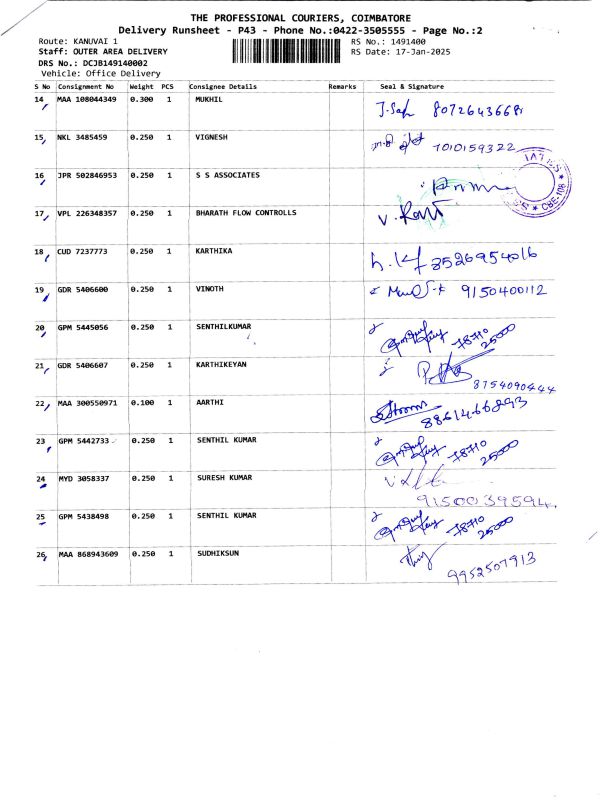 THE PROFESSIONAL COURIERS, COIMBATORE
Delivery Runsheet - P43 - Phone No.:0422-3505555 - Page No.:2
Route: KANUVAI 1 RS No.: 1491400
Staff: OUTER AREA DELIVERY RS Date: 17-Jan-2025
DRS No.: DCJB149140002
Vehicle: Office Delivery
S No Consignment No Weight PCS Consignee Details Remarks Seal & Signature
14 MAA 108044349 0.300 1 MUKHIL 8072643668
15 NKL 3485459 0.250 1 VIGNESH 7010159322
16 JPR 502846953 0.250 1 S S ASSOCIATES
17 VPL 226348357 0.250 1 BHARATH FLOW CONTROLLS
18 CUD 7237773 0.250 1 KARTHIKA 8526954016
19 GDR 5406600 0.250 1 VINOTH 9150400112
20 GPM 5445056 0.250 1 SENTHILKUMAR 78710 25000
21 GDR 5406607 0.250 1 KARTHIKEYAN 8754090444
22 MAA 300550971 0.100 1 AARTHI 8861466893
23 GPM 5442733 0.250 1 SENTHIL KUMAR 78710 25000
24 MYD 3058337 0.250 1 SURESH KUMAR 9150039594
25 GPM 5438498 0.250 1 SENTHIL KUMAR 78710 25000
26 MAA 868943609 0.250 1 SUDHIKSUN 9952507913